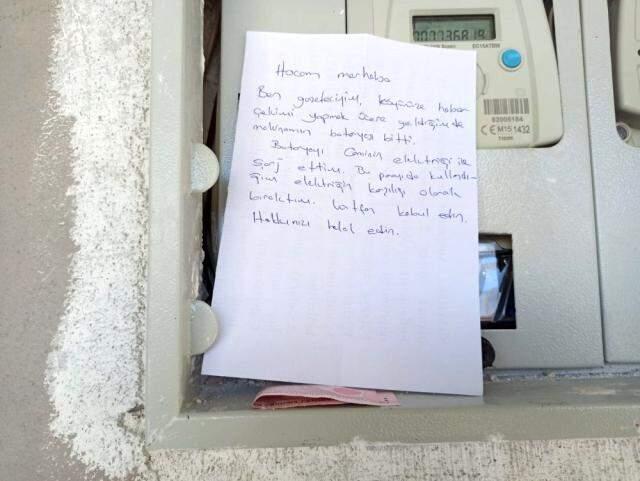 00736819
EC15ATBW
82008184
CE M15 1432
Hocam merhaba
Ben gazeteciyim, köyünüze haber
çekimi yapmak üzere geldiğimde
makinamın bataryası bitti.
Bataryayı Caminin elektriği ile
şarj ettim. Bu parayıda kullandı-
ğım elektriğin karşılığı olarak
bıraktım. Lütfen kabul edin.
Hakkınızı helal edin.